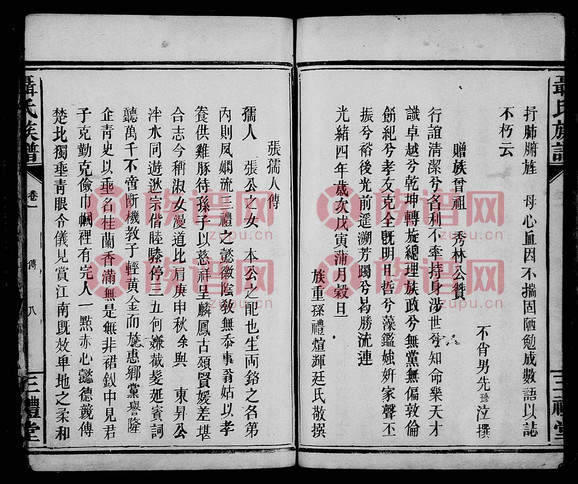 聶氏族譜
三禮堂
抒肺腑旌 母心血因不揣固陋勉成數語以誌
不朽云
不肖男先 泣撰
贈族曾祖 秀林公贊
行誼清潔兮名利不牽持身涉世兮知命樂天才
識卓越兮乾坤轉旋總理族政兮無黨無偏敦倫
飭紀兮孝友克全既明且哲兮藻鑑媸妍家聲丕
振兮裕後光前遥溯芳躅兮曷勝流連
族重孫禮 輝廷氏敬撰
光緒四年歲次戊寅蒲月穀旦
張孺人傳
孺人 張公之女 本公之配也生両 之名弟
內則夙嫻流三禮之懿徽 教無忝事翁姑以孝
養供雞豚待孫子以慈祥呈麟鳳古頌賢媛差堪
合志今稱淑女漫道比肩庚申秋余與 東昇公
泮水同遊 宗偕睦 停三五何嫌截髮延賓詞
聽萬千不啻斷機教子輕黃金而 惠鄉黨譽隆
企青史以垂名桂蘭香滿無是無非裙釵中見君
子克勤克儉巾幗裡有完人一點赤心懿德義傳
楚北獨垂青眼令儀見賞江南既效卑地之柔和
聶氏族譜
卷一
傳
八
三禮堂
族谱网
zupu.cn